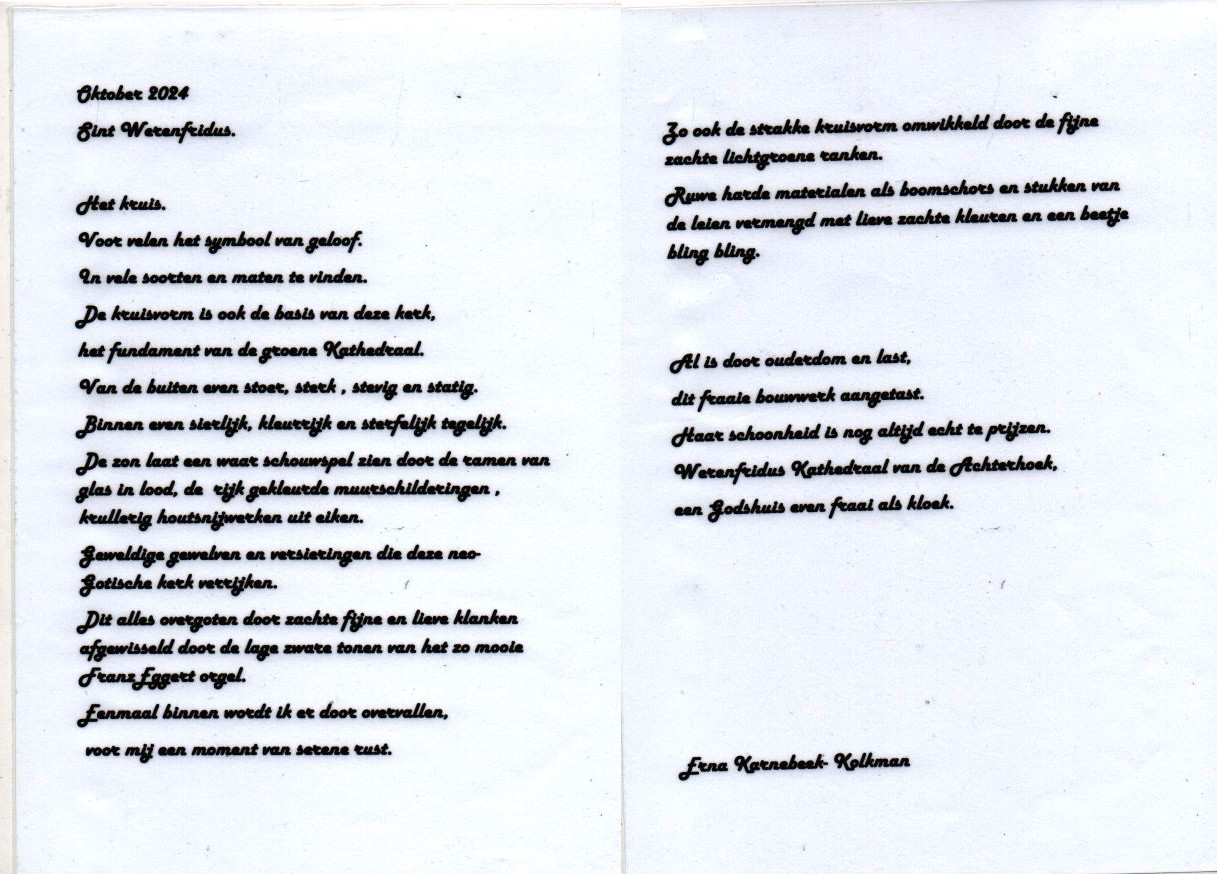 Oktober 2024
Sint Werenfridus.
Het kruis.
Voor velen het symbool van geloof.
In vele soorten en maten te vinden.
De kruisvorm is ook de basis van deze kerk,
het fundament van de groene Kathedraal.
Van de buiten even stoer, sterk , stevig en statig.
Binnen even sierlijk, kleurrijk en sterfelijk tegelijk.
De zon laat een waar schouwspel zien door de ramen van
glas in lood, de rijk gekleurde muurschilderingen ,
krullerig houtsnijwerken uit eiken.
Geweldige gewelven en versieringen die deze neo-
Gotische kerk verrijken.
Dit alles overgoten door zachte fijne en lieve klanken
afgewisseld door de lage zware tonen van het zo mooie
Franz Eggert orgel.
Eenmaal binnen wordt ik er door overvallen,
voor mij een moment van serene rust.
Zo ook de strakke kruisvorm omwikkeld door de fijne
zachte lichtgroene ranken.
Ruwe harde materialen als boomschors en stukken van
de leien vermengd met lieve zachte kleuren en een beetje
bling bling.
Al is door ouderdom en last,
dit fraaie bouwwerk aangetast.
Haar schoonheid is nog altijd echt te prijzen.
Werenfridus Kathedraal van de Achterhoek,
een Godshuis even fraai als kloek.
Erna Karnebeek- Kolkman